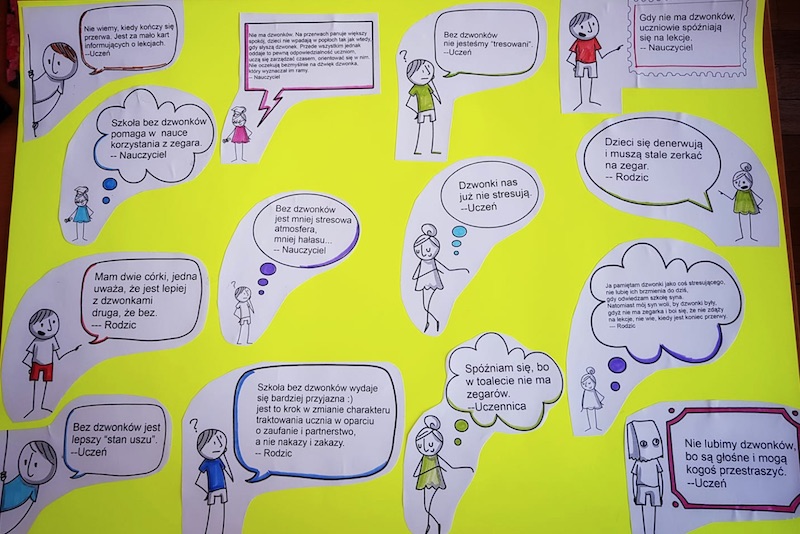 Nie wiemy, kiedy kończy się
przerwa. Jest za mało kart
informujących o lekcjach.
-Uczeń
Nie ma dzwonków. Na przerwach panuje większy
spokój, dzieci nie wpadają w popłoch tak jak wtedy,
gdy słyszą dzwonek. Przede wszystkim jednak
oddaje to pewną odpowiedzialność uczniom,
uczą się zarządzać czasem, orientować się w nim.
Nie czekają bezmyślnie na dźwięk dzwonka,
który wyznaczał im ramy
-- Nauczyciel
Bez dzwonków
nie jesteśmy "tresowani".
--Uczeń
Gdy nie ma dzwonków,
uczniowie spóźniają
się na lekcję.
-- Nauczyciel
Szkoła bez dzwonków
pomaga w nauce
korzystania z zegara.
-- Nauczyciel
Dzieci się denerwują
i muszą stale zerkać
na zegar.
-- Rodzic
Bez dzwonków
jest mniej stresowa
atmosfera,
mniej hałasu...
-- Nauczyciel
Dzwonki nas
już nie stresują.
--Uczeń
Mam dwie córki, jedna
uważa, że jest lepiej
z dzwonkami
druga, że bez.
--- Rodzic
Ja pamiętam dzwonki jako coś stresującego,
nie lubię ich brzmienia do dziś,
gdy odwiedzam szkołę syna.
Natomiast mój syn woli, by dzwonki były,
gdyż nie ma zegarka i boi się, że nie zdąży
na lekcje, nie wie, kiedy jest koniec przerwy.
--- Rodzic
Bez dzwonków jest
lepszy "stan uszu".
--Uczeń
Szkoła bez dzwonków wydaje
się bardziej przyjazna :)
jest to krok w zmianie charakteru
traktowania ucznia w oparciu
o zaufanie i partnerstwo,
a nie nakazy i zakazy.
-- Rodzic
Spóźniam się, bo
w toalecie nie ma
zegarów.
--Uczennica
Nie lubimy dzwonków,
bo są głośne i mogą
kogoś przestraszyć.
--Uczeń